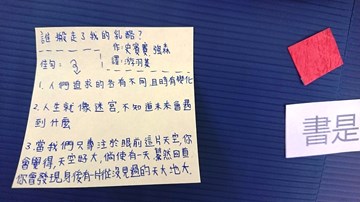 誰搬走了我的乳酪？
作：史賓賽．強森
佳句： 3 譯：游羽蓁
1. 人們追求的各有不同且時有變化
2. 人生就像迷宮，不知道未來會遇
到什麼
3. 當我們只專注於眼前這片天空，你
會覺得，天空好大，倘使有一天，驀然回首
你會發現身後有一片從沒見過的天大地大。
書是